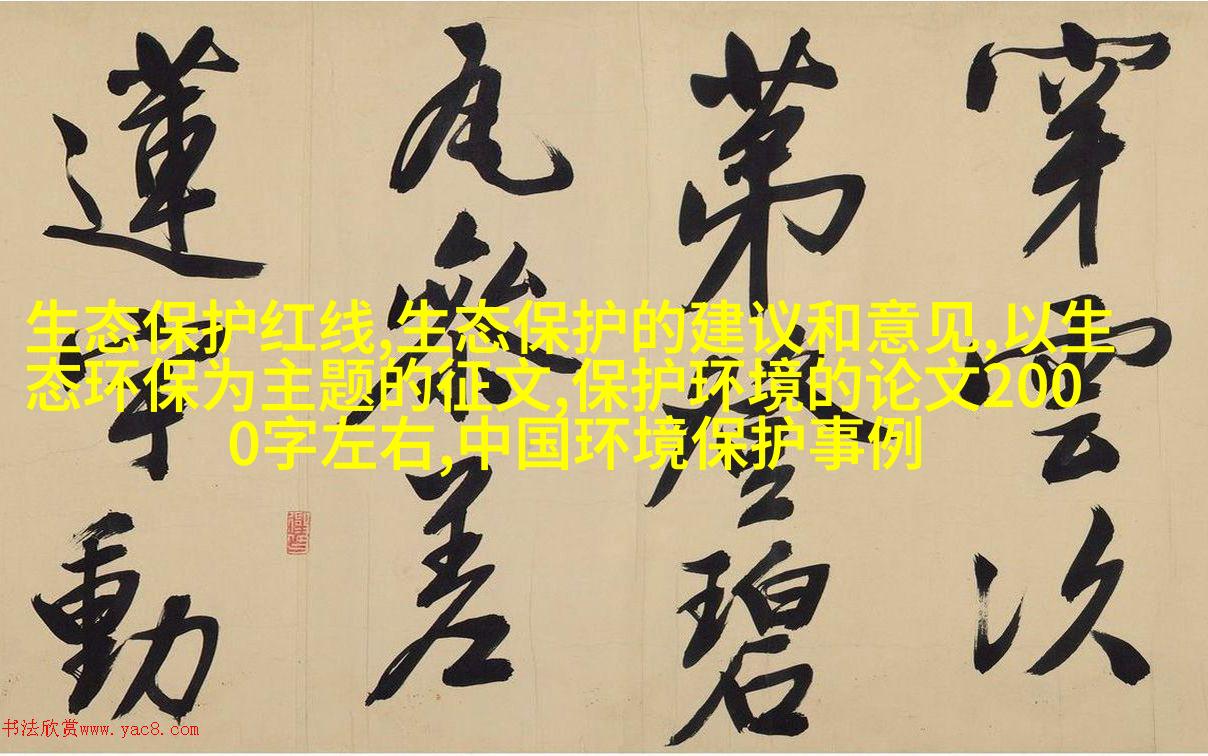 生态保护红线,生态保护的建议和意见,以生
态环保为主题的征文,保护环境的论文200
0字左右,中国环境保护事例
穿雲次
第碧
瓦參差
蓮動
书法欣赏www.yac8.com